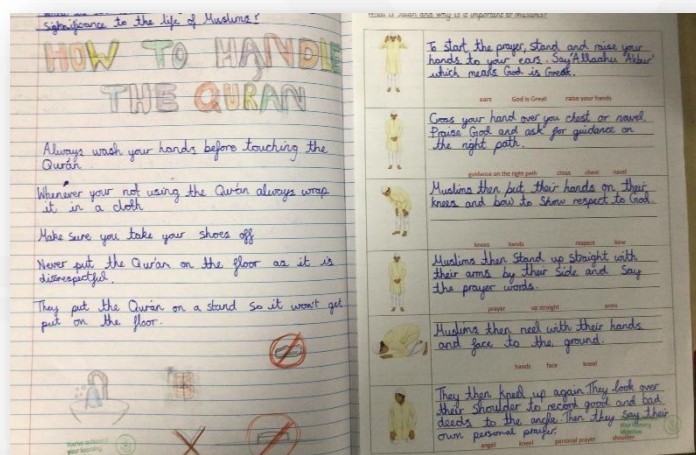 significance to the life of Muslims?
HOW TO HANDLE
THE QURAN
Always wash your hands before touching the
Qurán
Whenever your not using the Qurán always wrap
it in a cloth
Make sure you take your shoes off
Never put the Qurán on the floor as it is
disrespectful.
They put the Qurán on a stand so it won't get
put on the floor.
your learning
and why is it important to Muslims?
To start the prayer, stand and raise your
hands to your ears. Say 'Allaahu Akbar'
which means God is Great.
ears God is Great raise your hands
Cross your hand over you chest or navel.
Praise God and ask for guidance on
the right path.
guidance on the right path cross chest navel
Muslims then put their hands on their
knees and bow to show respect to God.
knees hands respect bow
Muslims then stand up straight with
their arms by their side and say
the prayer words.
prayer up straight arms
Muslims then neel with their hands
and face to the ground.
hands face kneel
They then kneel up again They look over
their shoulder to record good and bad
deeds to the angle. Then they say their
own personal prayer.
your learning
objective
angel kneel personal prayer shoulder